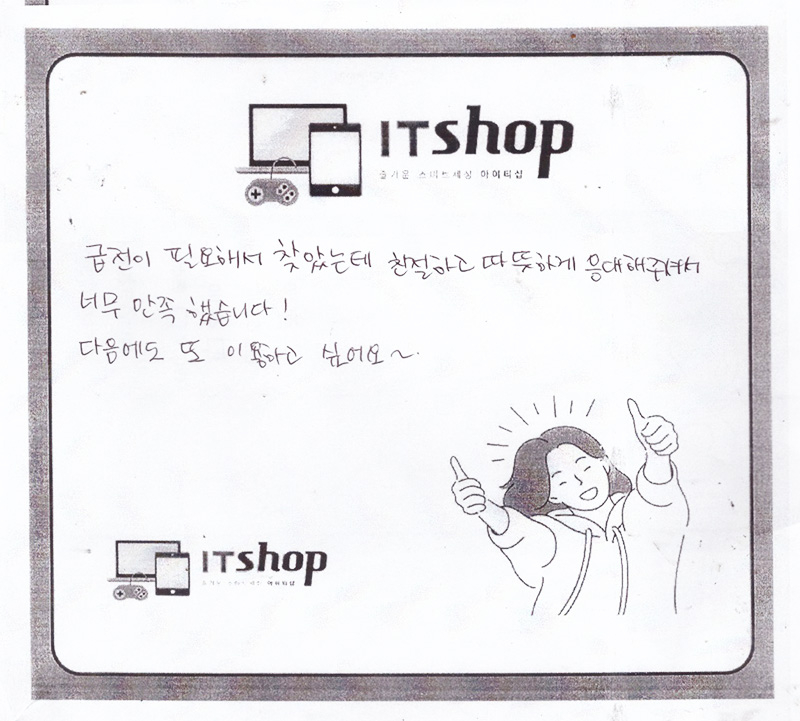 ITshop
즐거운 스마트세상 아이티샵
급전이 필요해서 찾았는데 친절하고 따뜻하게 응대해주셔서
너무 만족했습니다!
다음에도 또 이용하고 싶어요~
ITshop
아이티샵